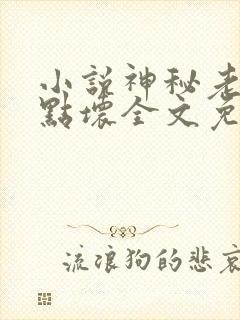 小說神秘老
點壞全文免
流浪狗的悲哀